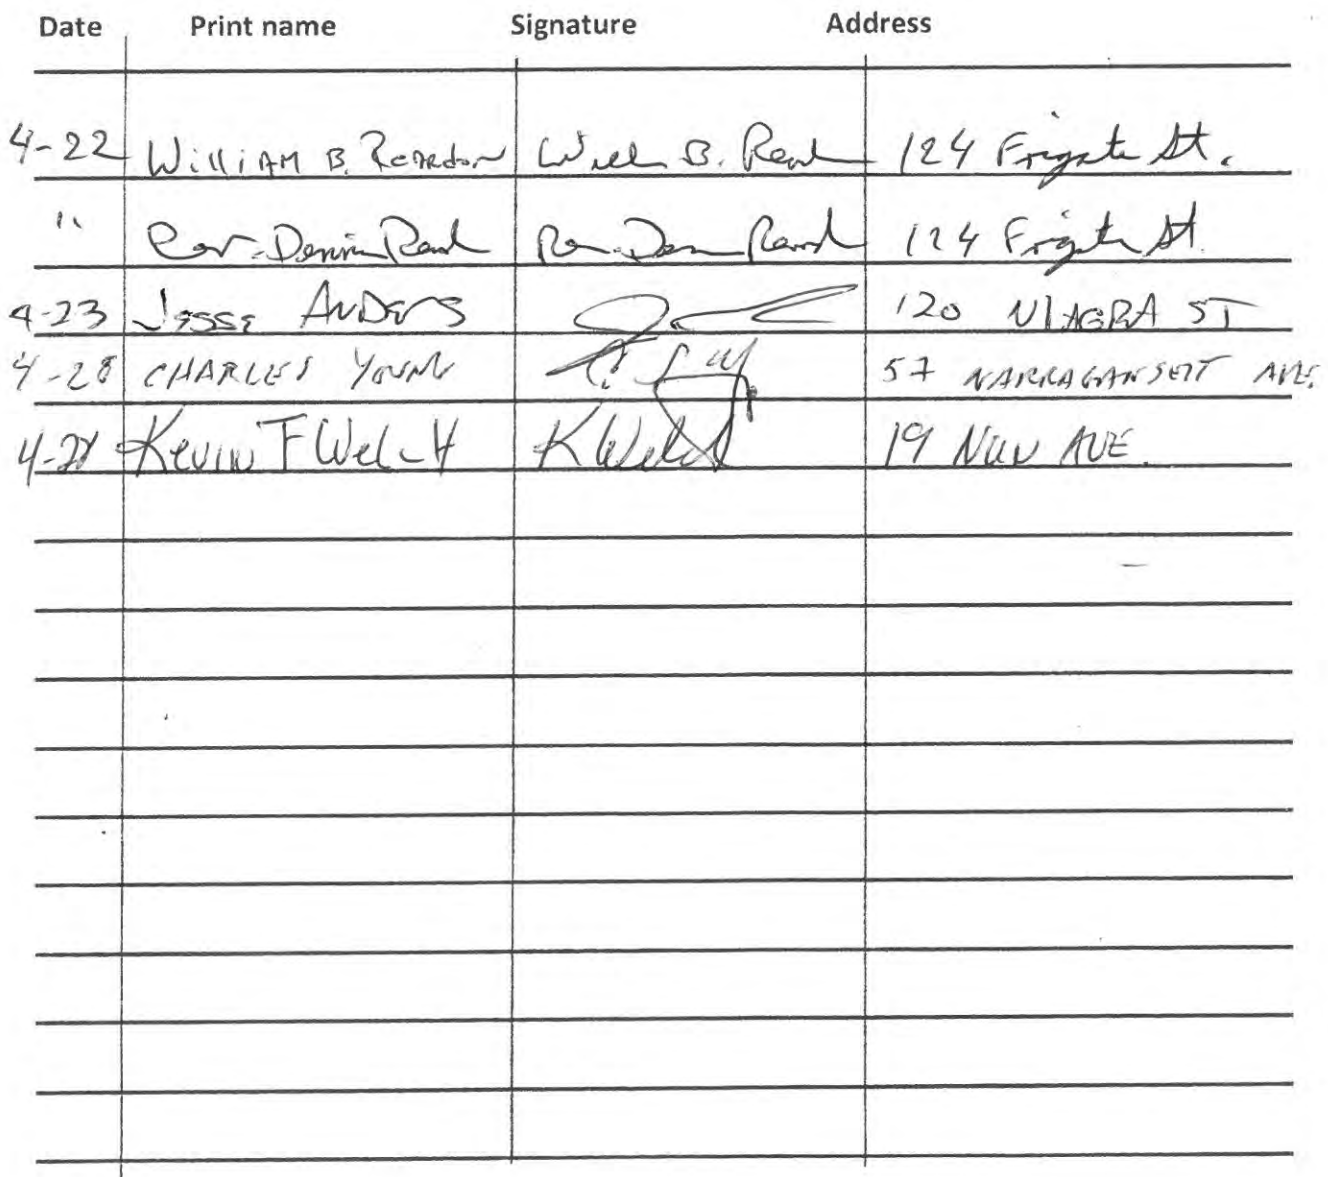 Date Print name Signature Address
4-22 William B. Reardon Will B. Rea 124 Frigate St.
" 124 Frigate St.
4-23 Jesse Anders 120 NIAGRA ST
4-28 CHARLES YOUNG 57 NARRAGANSETT AVE.
4-28 Kevin F Welch K Welch 19 AVE.